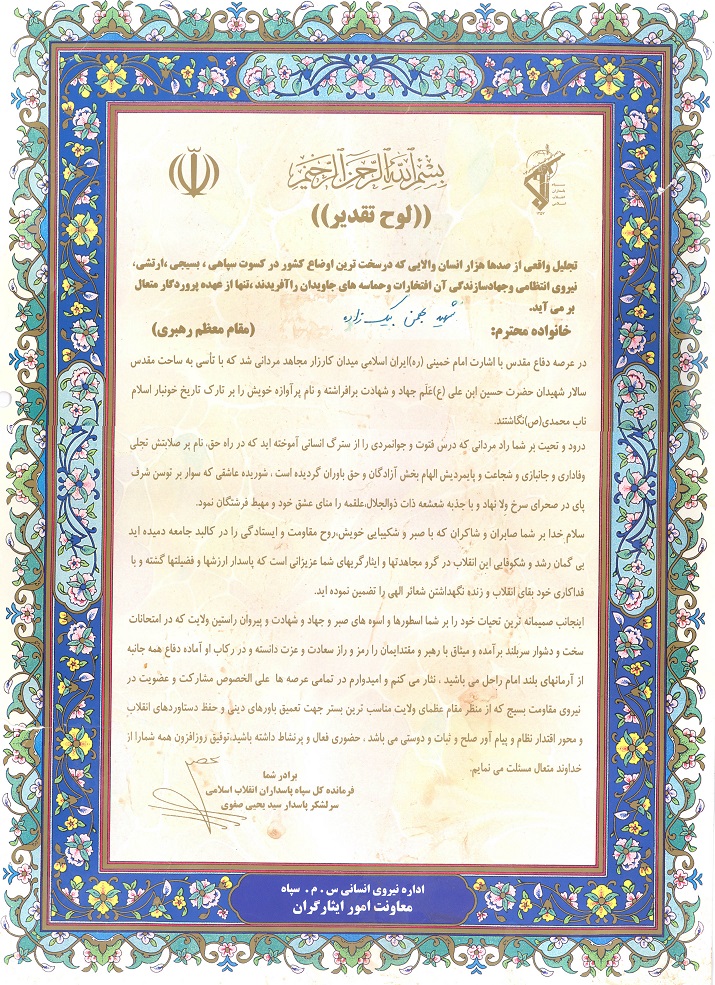 بسم الله الرحمن الرحیم
سپاه پاسداران انقلاب اسلامی
((لوح تقدیر))
تجلیل واقعی از صدها هزار انسان والایی که درسخت ترین اوضاع کشور در کسوت سپاهی ، بسیجی ،ارتشی،
نیروی انتظامی وجهادسازندگی آن افتخارات وحماسه های جاویدان راآفریدند ،تنها از عهده پروردگار متعال
بر می آید.
(مقام معظم رهبری)
خانواده محترم: شهید بهمن بیک زاده
در عرصه دفاع مقدس با اشارت امام خمینی (ره)ایران اسلامی میدان کارزار مجاهد مردانی شد که با تأسی به ساحت مقدس
سالار شهیدان حضرت حسین ابن علی (ع)عَلَم جهاد و شهادت برافراشته و نام پرآوازه خویش را بر تارک تاریخ خونبار اسلام
ناب محمدی(ص)نگاشتند.
درود و تحیت بر شما راد مردانی که درس فتوت و جوانمردی را از سترگ انسانی آموخته اید که در راه حق، نام بر صلابتش تجلی
وفاداری و جانبازی و شجاعت و پایمردیش الهام بخش آزادگان و حق باوران گردیده است ، شوریده عاشقی که سوار بر توسن شرف
پای در صحرای سرخ ولا نهاد و با جذبه شعشعه ذات ذوالجلال،علقمه را منای عشق خود و مهبط فرشتگان نمود.
سلام خدا بر شما صابران و شاکران که با صبر و شکیبایی خویش،روح مقاومت و ایستادگی را در کالبد جامعه دمیده اید
بی گمان رشد و شکوفایی این انقلاب در گرو مجاهدتها و ایثارگریهای شما عزیزانی است که پاسدار ارزشها و فضیلتها گشته و با
فداکاری خود بقای انقلاب و زنده نگهداشتن شعائر الهی را تضمین نموده اید.
اینجانب صمیمانه ترین تحیات خود را بر شما اسطورها و اسوه های صبر و جهاد و شهادت و پیروان راستین ولایت که در امتحانات
سخت و دشوار سربلند برآمده و میثاق با رهبر و مقتدایمان را رمز و راز سعادت و عزت دانسته و در رکاب او آماده دفاع همه جانبه
از آرمانهای بلند امام راحل می باشید ، نثار می کنم و امیدوارم در تمامی عرصه ها علی الخصوص مشارکت و عضویت در
نیروی مقاومت بسیج که از منظر مقام عظمای ولایت مناسب ترین بستر جهت تعمیق باورهای دینی و حفظ دستاوردهای انقلاب
و محور اقتدار نظام و پیام آور صلح و ثبات و دوستی می باشد ، حضوری فعال و پرنشاط داشته باشید،توفیق روزافزون همه شمارا از
خداوند متعال مسئلت می نمایم.
برادر شما
فرمانده کل سپاه پاسداران انقلاب اسلامی
سرلشکر پاسدار سید یحیی صفوی
اداره نیروی انسانی س . م . سپاه
معاونت امور ایثارگران